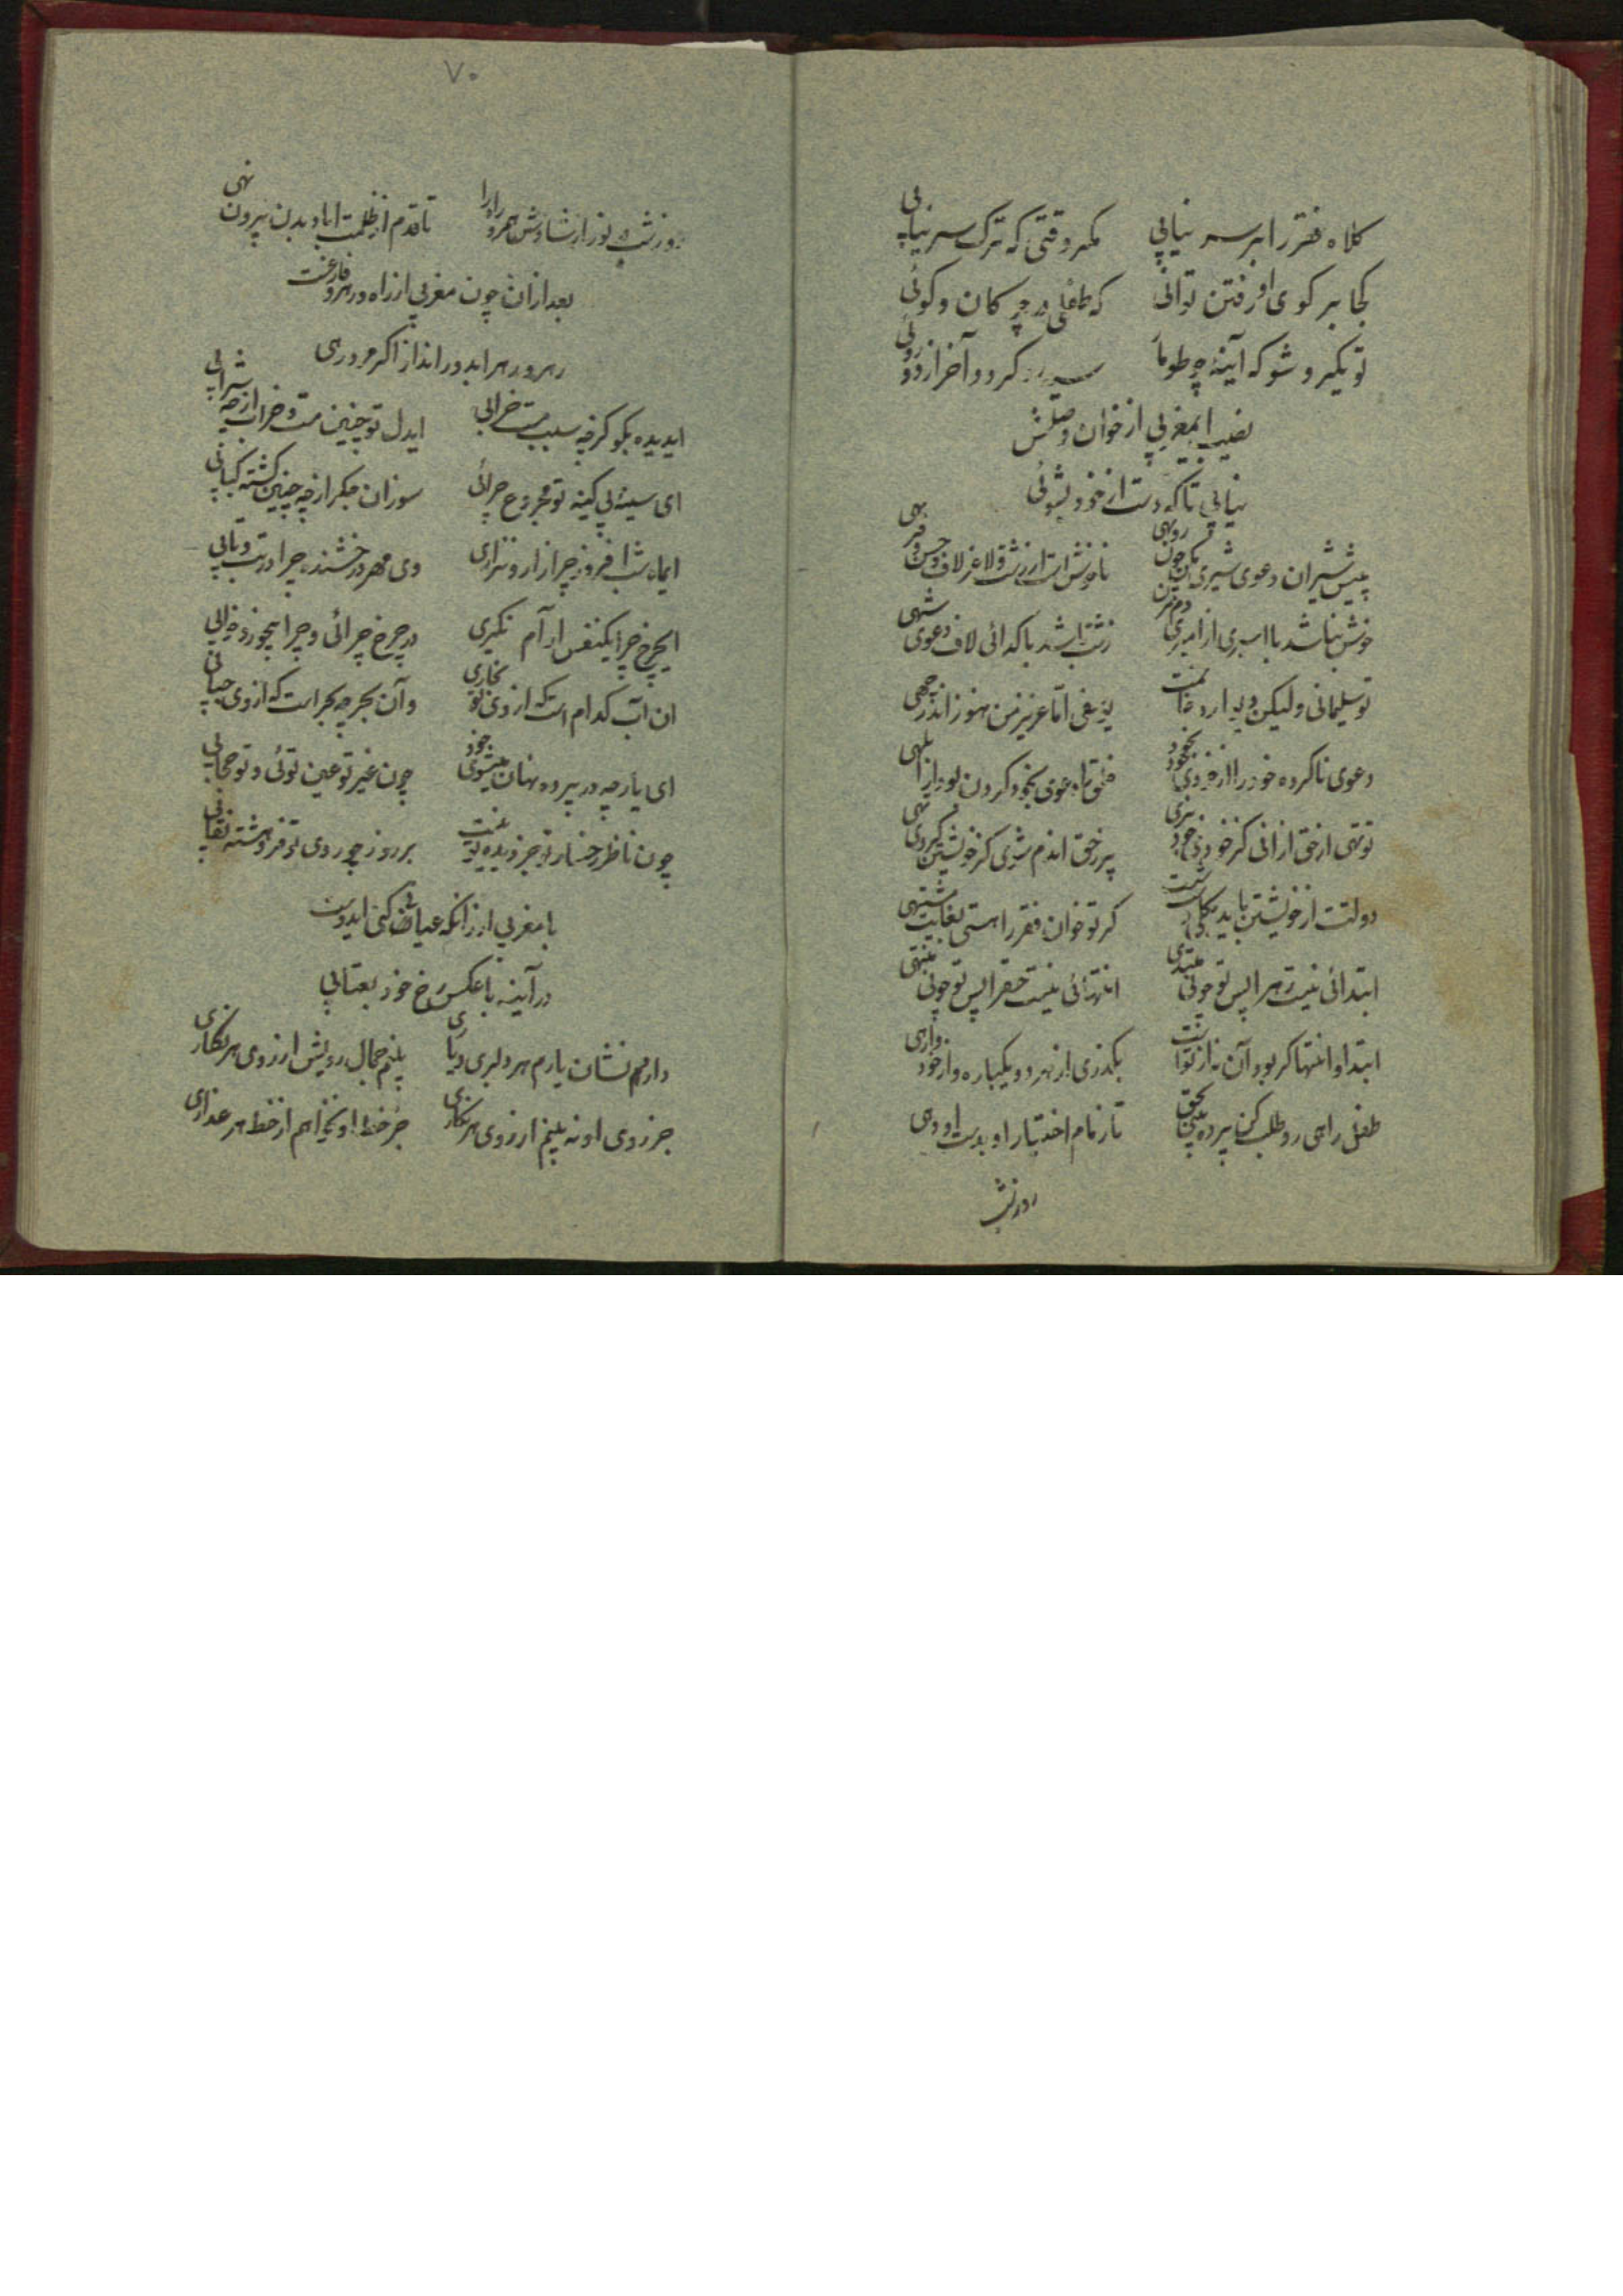 کلاه فقر را بر سر نیابی مگر وقتی که ترک سر نیابی
کجا بر کوی او رفتن توانی که طفلی در چه کان و کوئی
تو یکرو شو که آینه چو طومار سیه رو گردد آخر از دوروئی
نصیب ایمغربی از خوان وصلش
نیابی تا که دست از خود بشوئی
پیش شیران دعوی شیری مکن چون روبهی ناخوشست از زشت لاغر لاف حسن و فربهی
خوش نباشد با اسیری از امیری دم مزن زشت باشد با گدائی لاف دعوی شهی
تو سلیمانی ولیکن دیو دارد خاتمت یوسفی اما عزیز من هنوز اندر چهی
دعوی ناکرده خود را از خودی بیخود
توتهی از حق ازانی کز خودی خود پری پر زحق اندم شوی کز خویشتن گردی تهی
دولتت از خویشتن باید بکلی دست شست گر تو خوان فقر را هستی بغایت مشتهی
ابتدائی نیست زهرا پس تو چونی مبتدی انتهائی نیست حقرا پس تو چونی منتهی
ابتدا و انتها گر بود آن از تو است بگذری از هر دو یکباره و از خود وارهی
طفل راهی رو طلب کن پیر ره بین بحق تا زمام اختیار او بدست او دهی
روز شب
۷۰
روز شب نور ارشادش همرو راه را تا قدم از ظلمت اباد بدن بیرون نهی
بعد ازان چون مغربی از راه و رهرو فارغست
رهرو و رهرا بدور انداز اگر مرد رهی
ایدیده بگو کز چه سبب مست خرابی ایدل تو چنین مست و خراب از چه شرابی
ای سینه بی کینه تو مجروح چرائی سوزان جگر از چه چنین گشته کبابی
ایماه شب افروز چرا زار و نزاری وی مهر درخشنده چرا در تب و تابی
ایچرخ چرا یکنفس آرام نگیری در چرخ چرائی و چرا بیخور و خوابی
ان آب کدام است که از وی تو بخاری وآن بحر چه بحر است که از وی حبابی
ای یار چه در پرده نهان میشوی خود چون غیر تو عین توئی و تو حجابی
چون ناظر رخسار تو جز دیده تو نیست بر روز چو روی تو فروهشته نقابی
با مغربی ار زانکه عیان کنی ایدوست
در آینه با عکس رخ خود بعتابی
دارم نشان یارم هر دلبری و یاری بینم جمال رویش از روی هر نگاری
جز روی او نه بینم از روی هر نگاری جز خط او نخواهم از خط هر عذاری